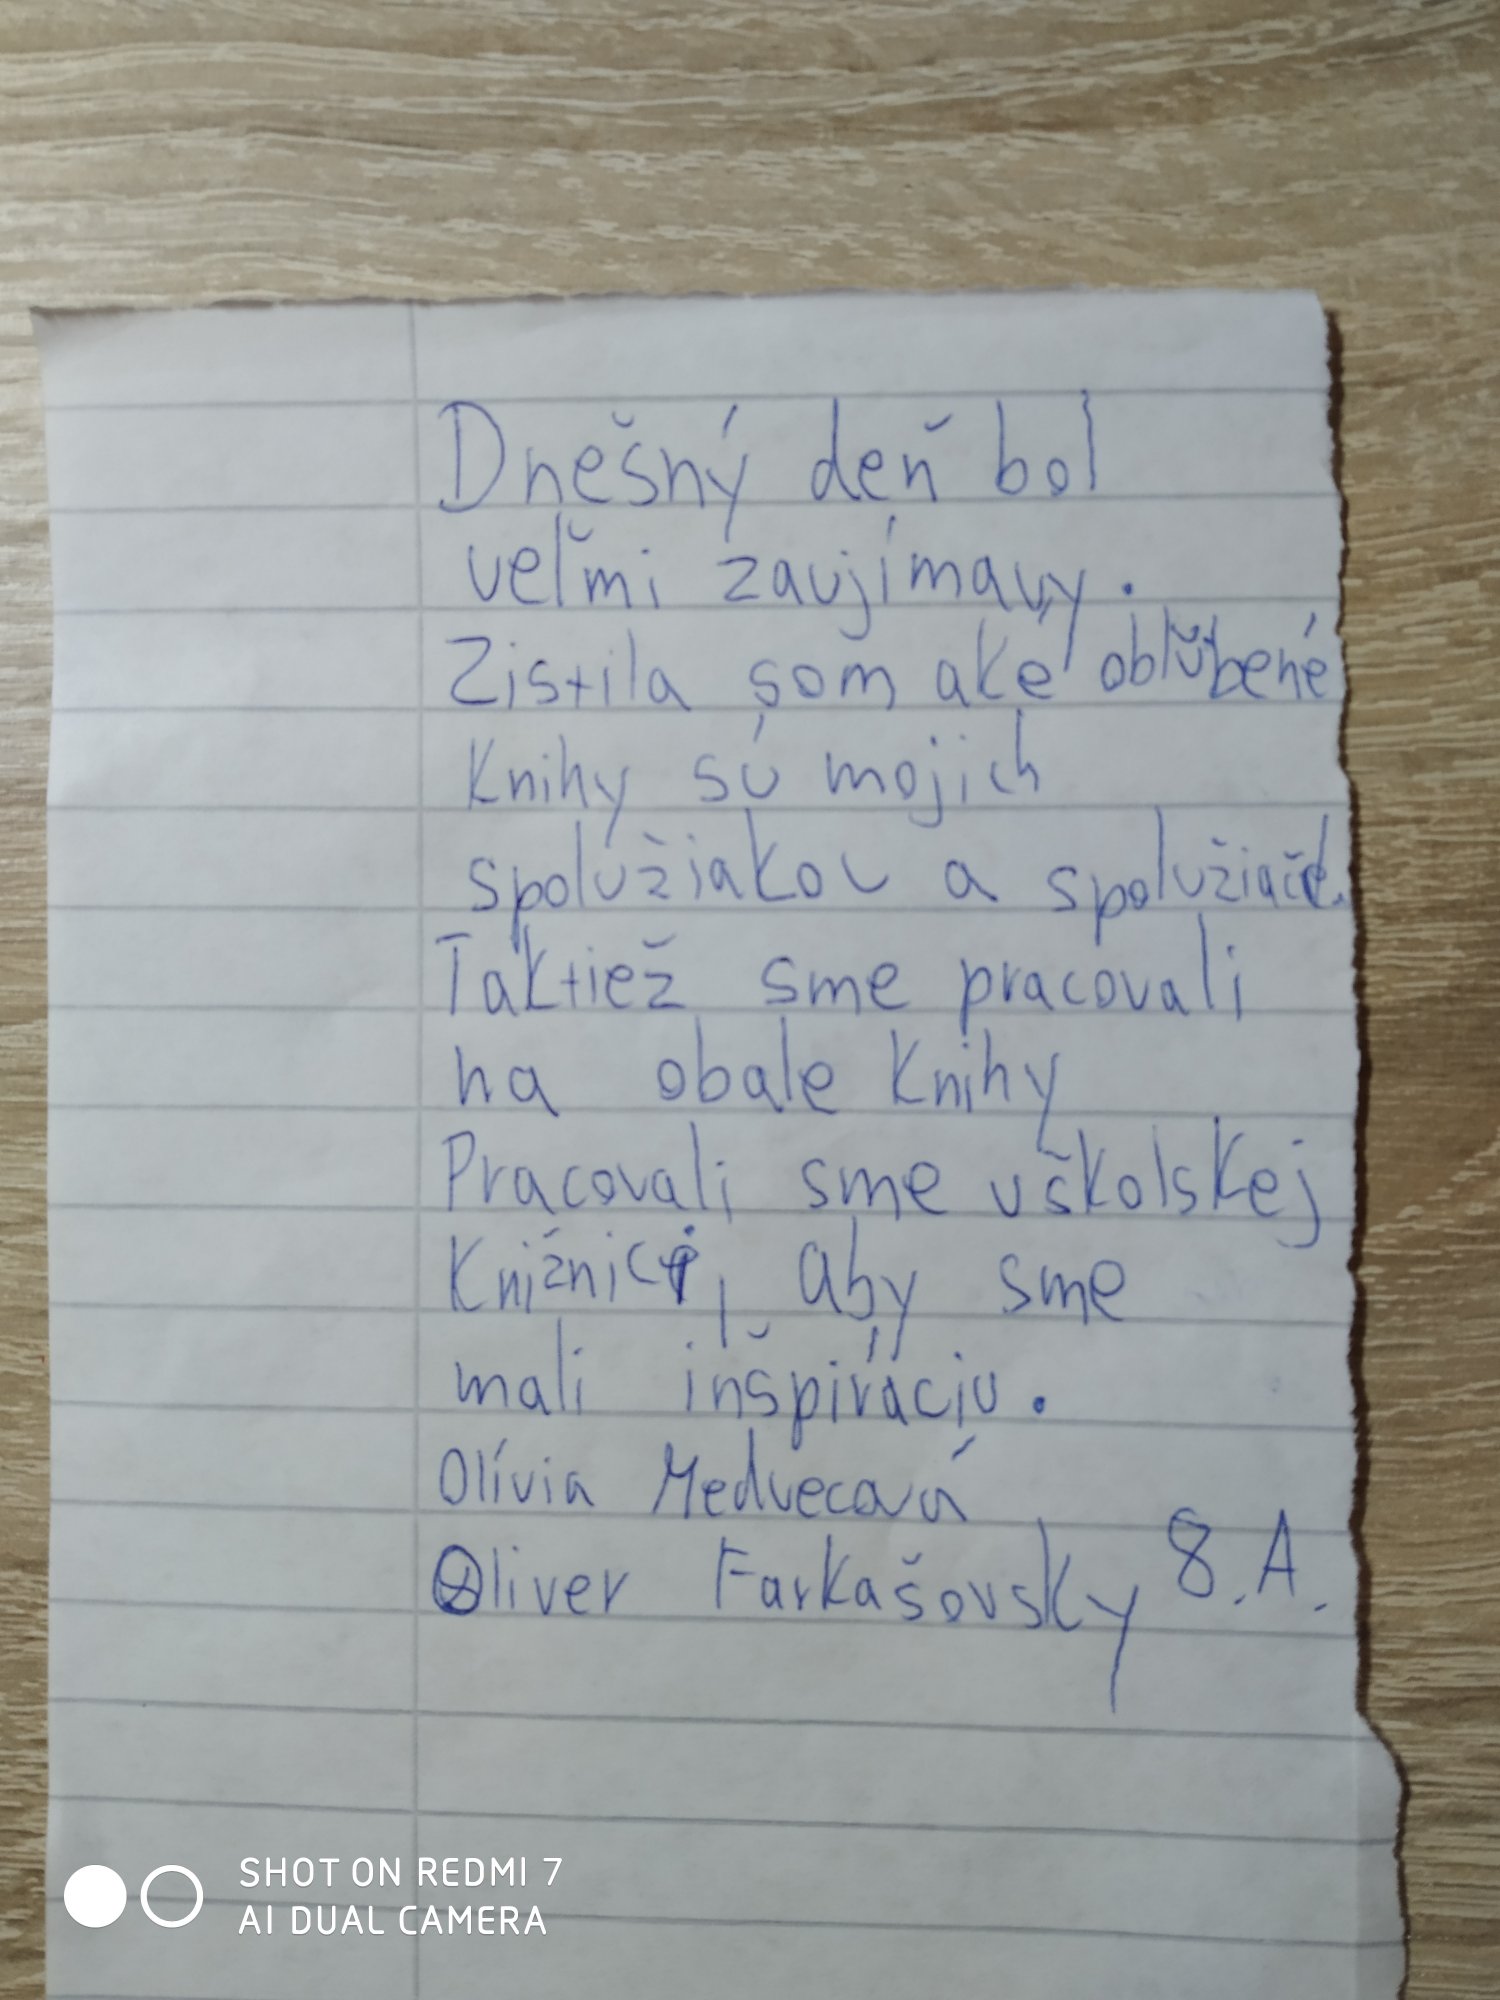 Dnešný deň bol
veľmi zaujímavy.
Zistila som aké obľúbené
Knihy sú mojich
spolužiakov a spolužiačč.
Taktiež sme pracovali
na obale Knihy
Pracovali sme v školskej
Knižnici, aby sme
mali inšpiráciu.
Olívia Medvecová
Oliver Farkašovsky 8.A.
SHOT ON REDMI 7
AI DUAL CAMERA